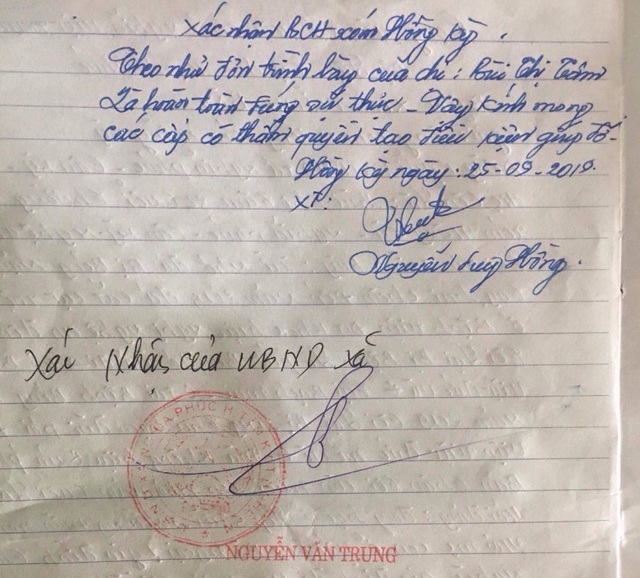 Xác nhận BCH xóm Hồng Kỳ.
Theo như đơn trình bày của chị: Bùi Thị Trâm
Là hoàn toàn đúng sự thực - Vậy kính mong
các cấp có thẩm quyền tạo điều kiện giúp đỡ -
Hồng Kỳ ngày: 25-09-2019.
XT:
Nguyễn Duy Hồng.
Xác Nhận của UBND xã
XÃ PHÚC
NGUYỄN VĂN TRUNG